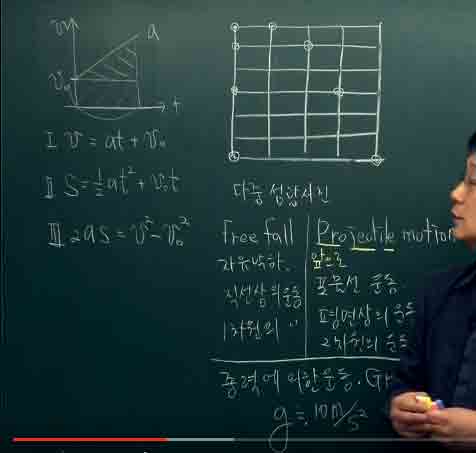 v
a
v₀
t
I v = at + v₀
II S = ½at² + v₀t
III 2as = v² - v₀²
다중 섬광사진
free fall
자유낙하.
직선상의 운동
1차원의 〃
Projectile motion
앞으로
포물선 운동.
평면상의 운동
2차원의 운동
중력에 의한 운동.
g ≒ 10 m/s²